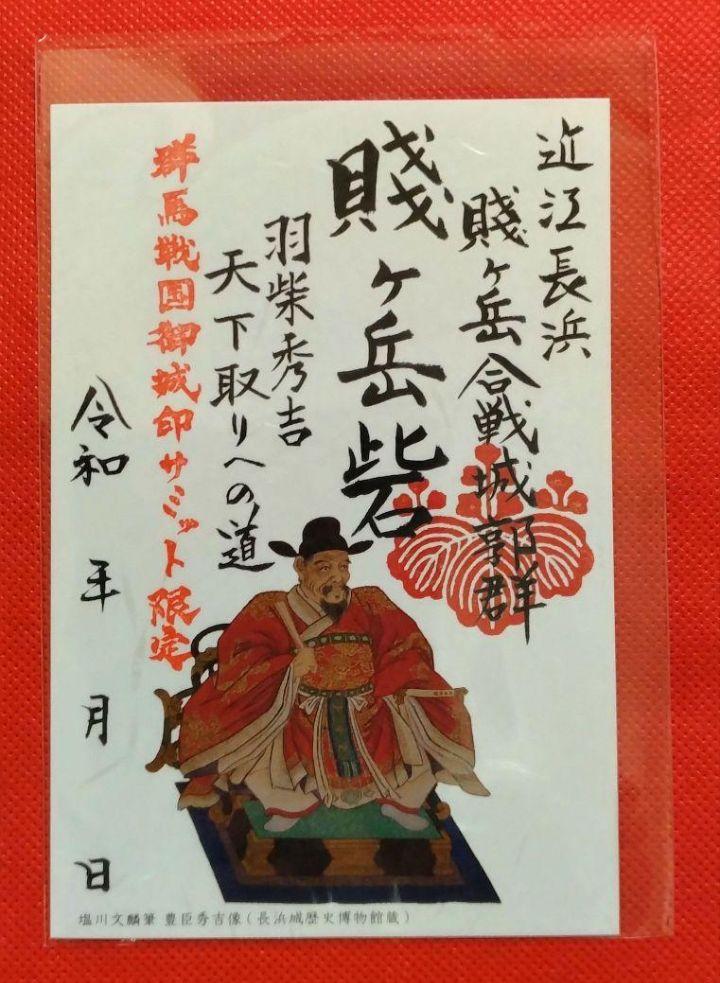 近江長浜
賤ヶ岳合戦城郭群
賤ヶ岳砦
羽柴秀吉
天下取りへの道
群馬戦国御城印サミット限定
令和 年 月 日
塩川文麟筆 豊臣秀吉像（長浜城歴史博物館蔵）